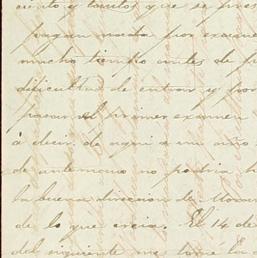 ciento y tantos que se pres
pagan nada por examen
mucho tiempo antes de p
dificultad de entrar y por
pasar el primer examen
á decir de aquí a un año
de antemano no podría h
la buena direccion de Moran
de lo que creia. El 14 de
del siguiente me tomé la